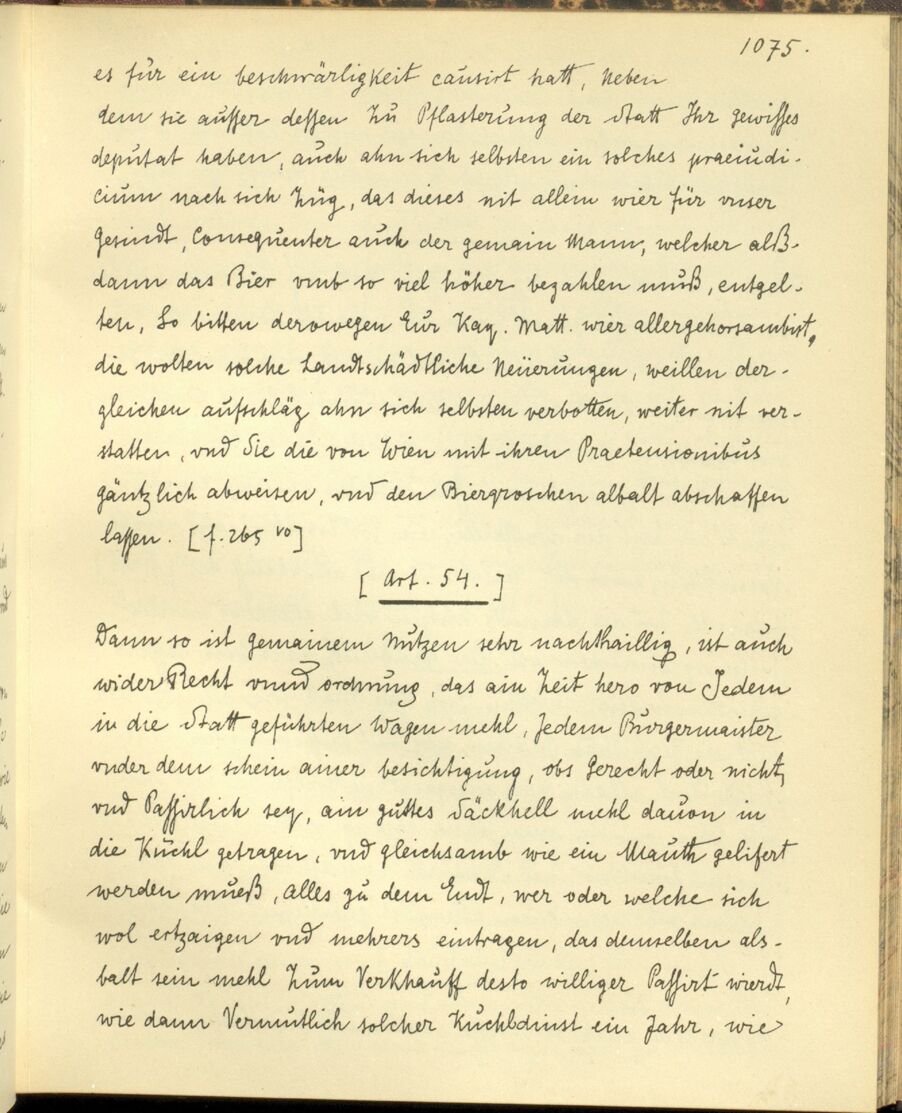 1075.
es für ein beschwärligkeit causirt hatt, Neben
dem sie ausser dessen Zu Pflasterung der Statt Ihr gewisses
deputat haben, auch ahn sich selbsten ein solches praeiudi-
cium nach sich Züg, das dieses nit allein wier für vnser
Gesindt, Consequenter auch der gemain Mann, welcher alß-
dann das Bier vmb so viel höher bezahlen muß, entgel-
ten, So bitten derowegen Eur Kay. Matt. wier allergehorsambist,
die wolten solche Landtschädtliche Neüerungen, weillen der-
gleichen aufschläg ahn sich selbsten verbotten, weiter nit ver-
statten, vnd Sie die von Wien mit ihren Praetensionibus
gäntzlich abweisen, vnd den Biergroschen albalt abschaffen
lassen. [f. 265 vo]
[Art. 54.]
Dann so ist gemainem Nutzen sehr nachthaillig, ist auch
wider Recht vnnd ordnung, das ain Zeit hero von Jedem
in die Statt geführten Wagen mehl, Jedem Burgermaister
vnder dem schein ainer besichtigung, obs Gerecht oder nicht,
vnd Passirlich sey, ain guttes Säckhell mehl dauon in
die Kuchl getragen, vnd gleichsamb wie ein Mauth gelifert
werden mueß, alles zu dem Endt, wer oder welche sich
wol ertzaigen vnd mehrers eintragen, das demselben als-
balt sein mehl Zum Verkhauff desto williger Passirt wierdt,
wie dann Vermutlich solcher Kuchldinst ein Jahr, wie